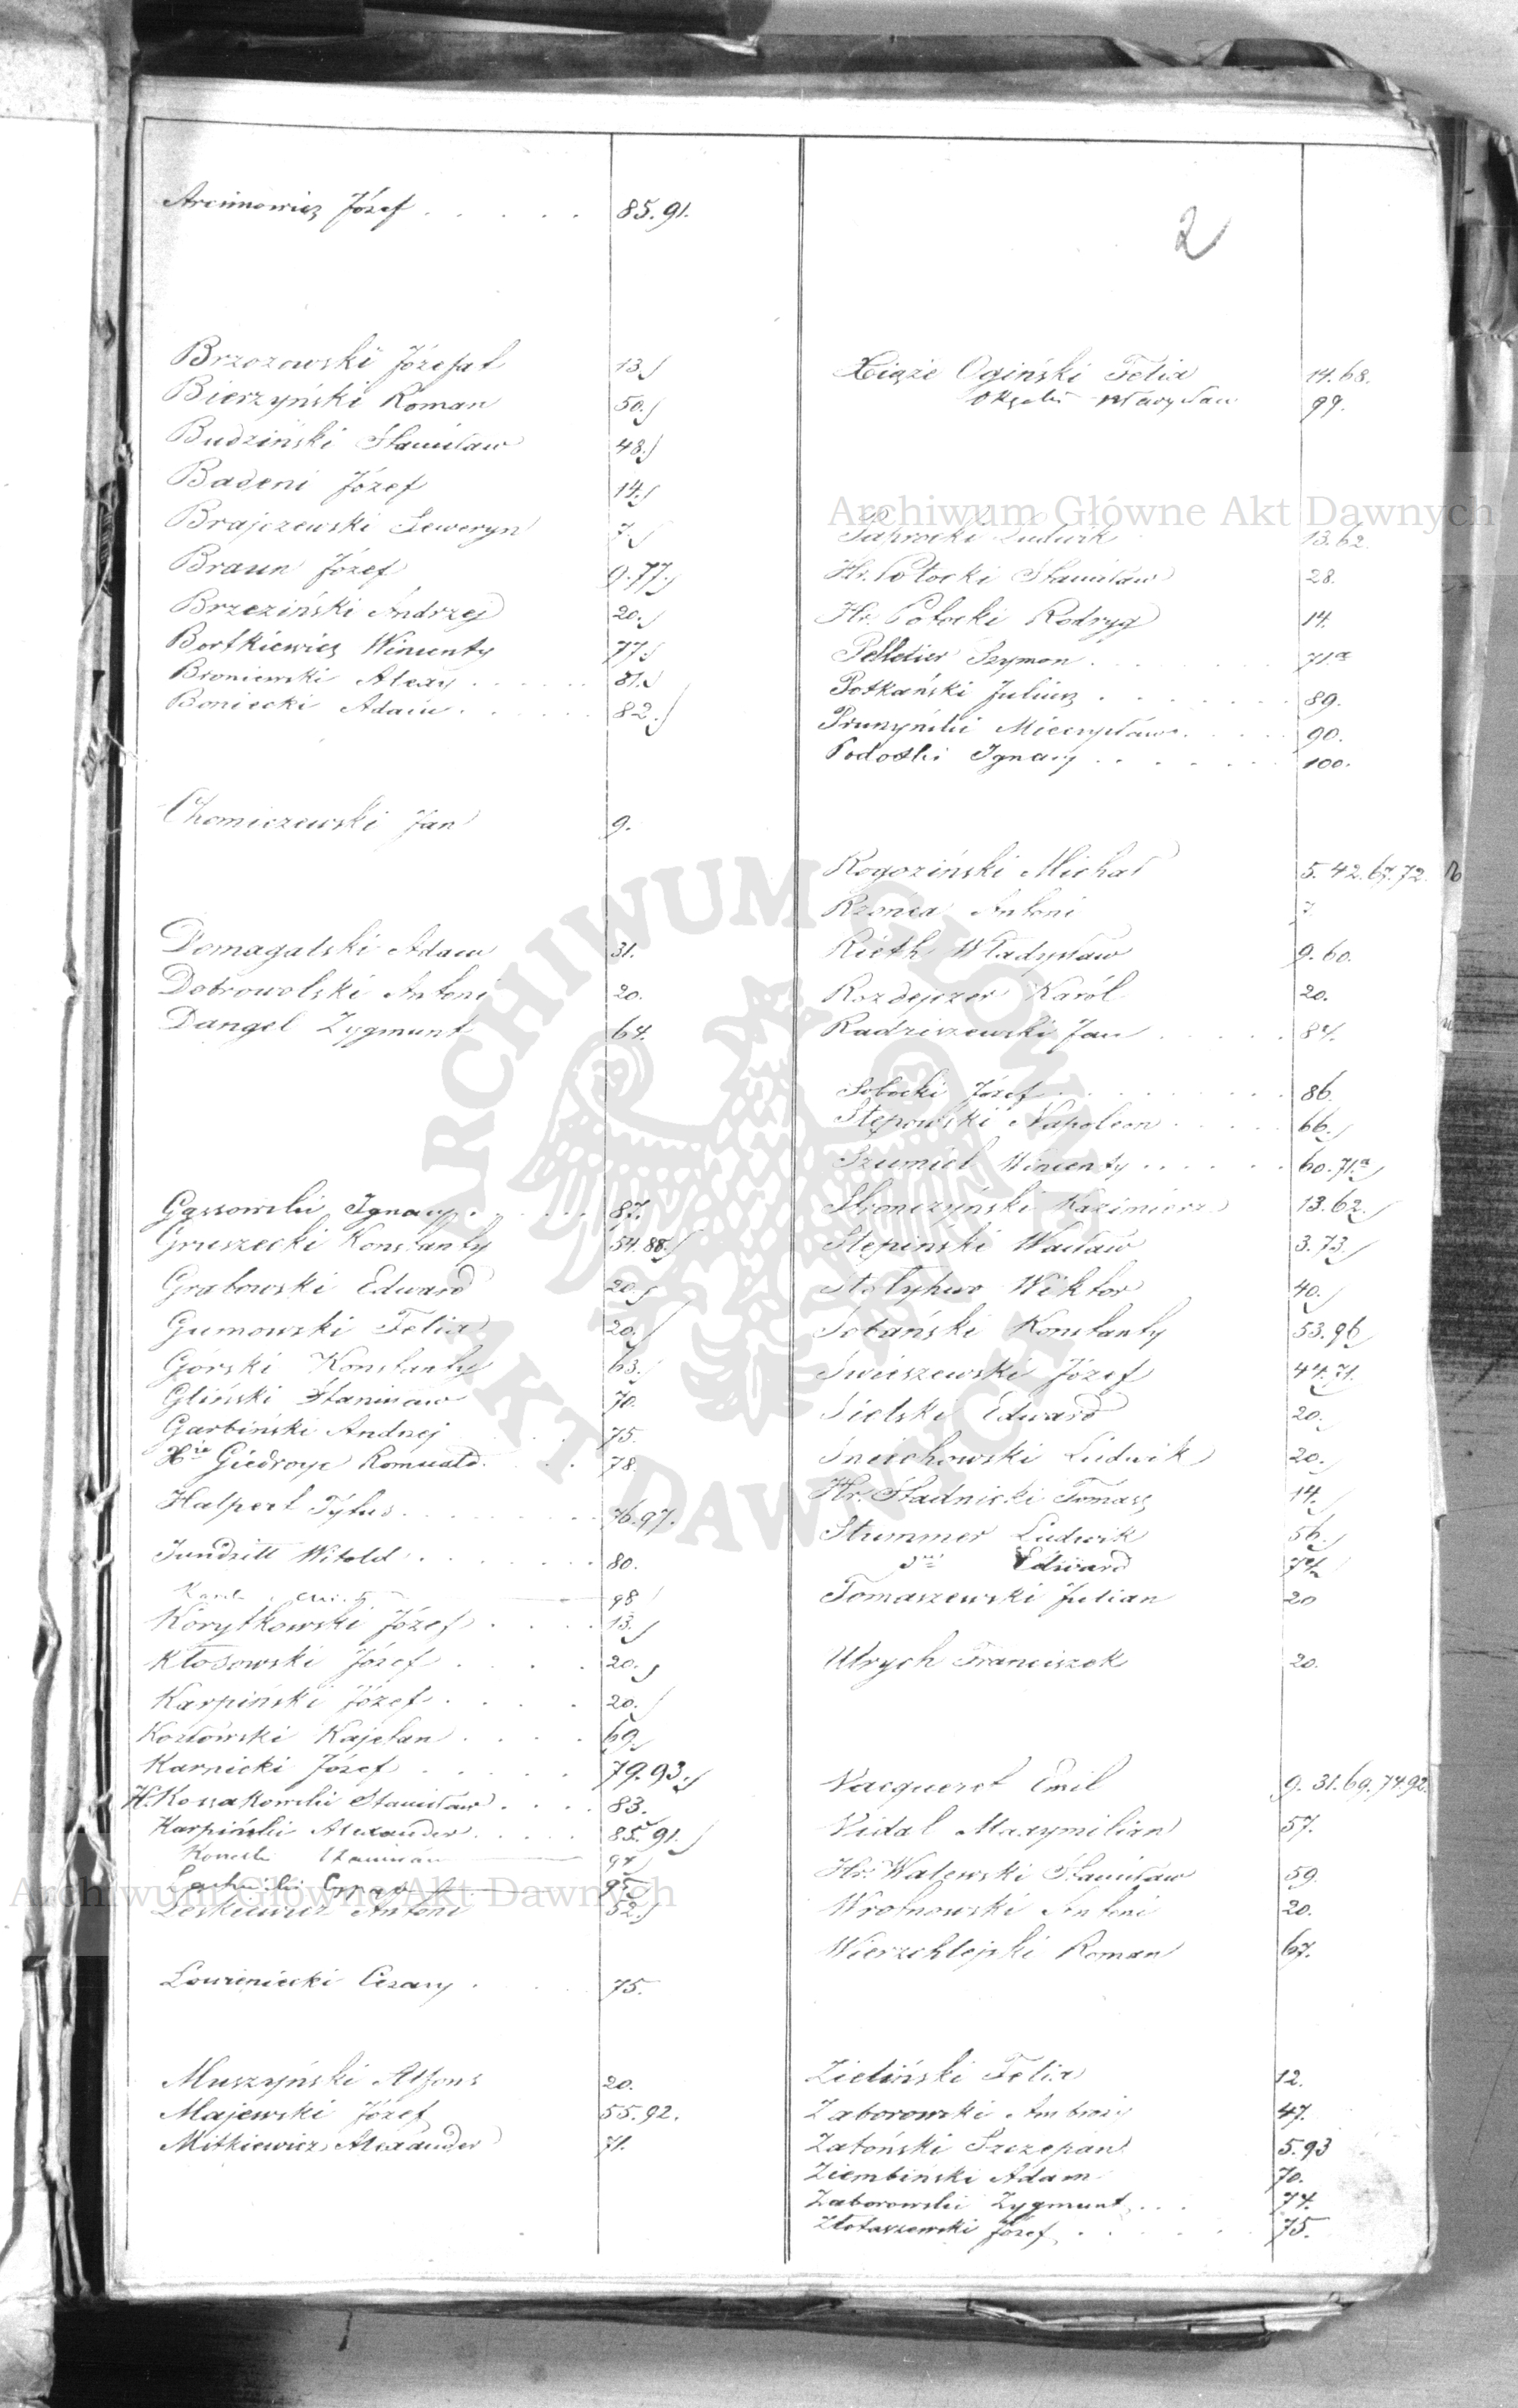 2
Arcimowicz Józef . . . . . 85.91.
Brzozowski Józefat 13.
Bierzyński Roman 50.
Budziński Stanisław 48.
Badeni Józef 14.
Brajczewski Seweryn 7.
Braun Józef 9.77.
Brzeziński Andrzej 20.
Bortkiewicz Wincenty 77.
Broniewski Alexy . . . . . 81.
Boniecki Adam . . . . . 82.
Chomiczewski Jan 9.
Domagalski Adam 31.
Dobrowolski Antoni 20.
Dangel Zygmunt 64.
Gąssowski Ignacy . . . . 87.
Gruszecki Konstanty 54.88.
Grabowski Edward 20.
Gumowski Felix 20.
Górski Konstanty 63.
Gliński Stanisław 70.
Garbiński Andrzej . . . 75.
Giedroyc Romuald . . . 78.
Halpert Tytus . . . . . . . 76.97.
Jundziłł Witold . . . . . . 80.
98
Korytkowski Józef . . . . 13.
Kłosowski Józef . . . . 20.
Karpiński Józef . . . . 20.
Kozłowski Kajetan . . . . 69.
Karnicki Józef . . . . . 79.93.
H. Kossakowski Stanisław . . . . 83.
Karpiński Alexander . . . . . 85.91.
Stanisław
95.
Leskiewicz Antoni 52.
Cezary . . . 75.
Muszyński Alfons 20.
Majewski Józef 55.92.
Mitkiewicz Alexander 71.
Xiąże Ogiński Felix 14.68.
99.
Archiwum Główne Akt Dawnych
Paprocki Ludwik 13.62.
Hr. Potocki Stanisław 28.
Hr. Potocki Rodryg 14.
Pelletier Szymon . . . . . . 71.a
Potkański Juliusz . . . . . . 89.
Pruszyński Mieczysław . . . . . 90.
Podoski Ignacy . . . . . . 100.
Rogoziński Michał 5.42.67.72.
Rzonca Antoni 7.
Rieth Władysław 9.60.
Rozdejczer Karól 20.
Radziszewski Jan . . . . .
Sobocki Józef . . . . . . . . 86.
Stępowski Napoleon . . . . . 66.
Szumiel Wincenty . . . . . . 60.71.a
Stronczyński Kazimierz 13.62.
Stępinski Wacław 3.73.
Stołyhwo Wiktor 40.
Sobański Konstanty 53.96
Świeszewski Józef 44.71.
Sielski Edward 20.
Śniechowski Ludwik 20.
Hr. Stadnicki Tomasz 14.
Stummer Ludwik 56.
Edward
Tomaszewski Julian 20
Ulrych Franciszek 20.
Vacqueret Emil 9.31.69.74.92.
Vidal Maxymilian 57.
Hr. Walewski Stanisław 59.
Wrotnowski Antoni 20.
Wierzchlejski Roman 67.
Zieliński Felix 12.
Zaborowski Ambroży 47.
Zatoński Szczepan 5.93
Ziembiński Adam 70.
Zaborowski Zygmunt . . . 74.
Złotaszewski Józef . . . . . . 75.
ARCHIWUM GŁÓWNE AKT DAWNYCH
Archiwum Główne Akt Dawnych